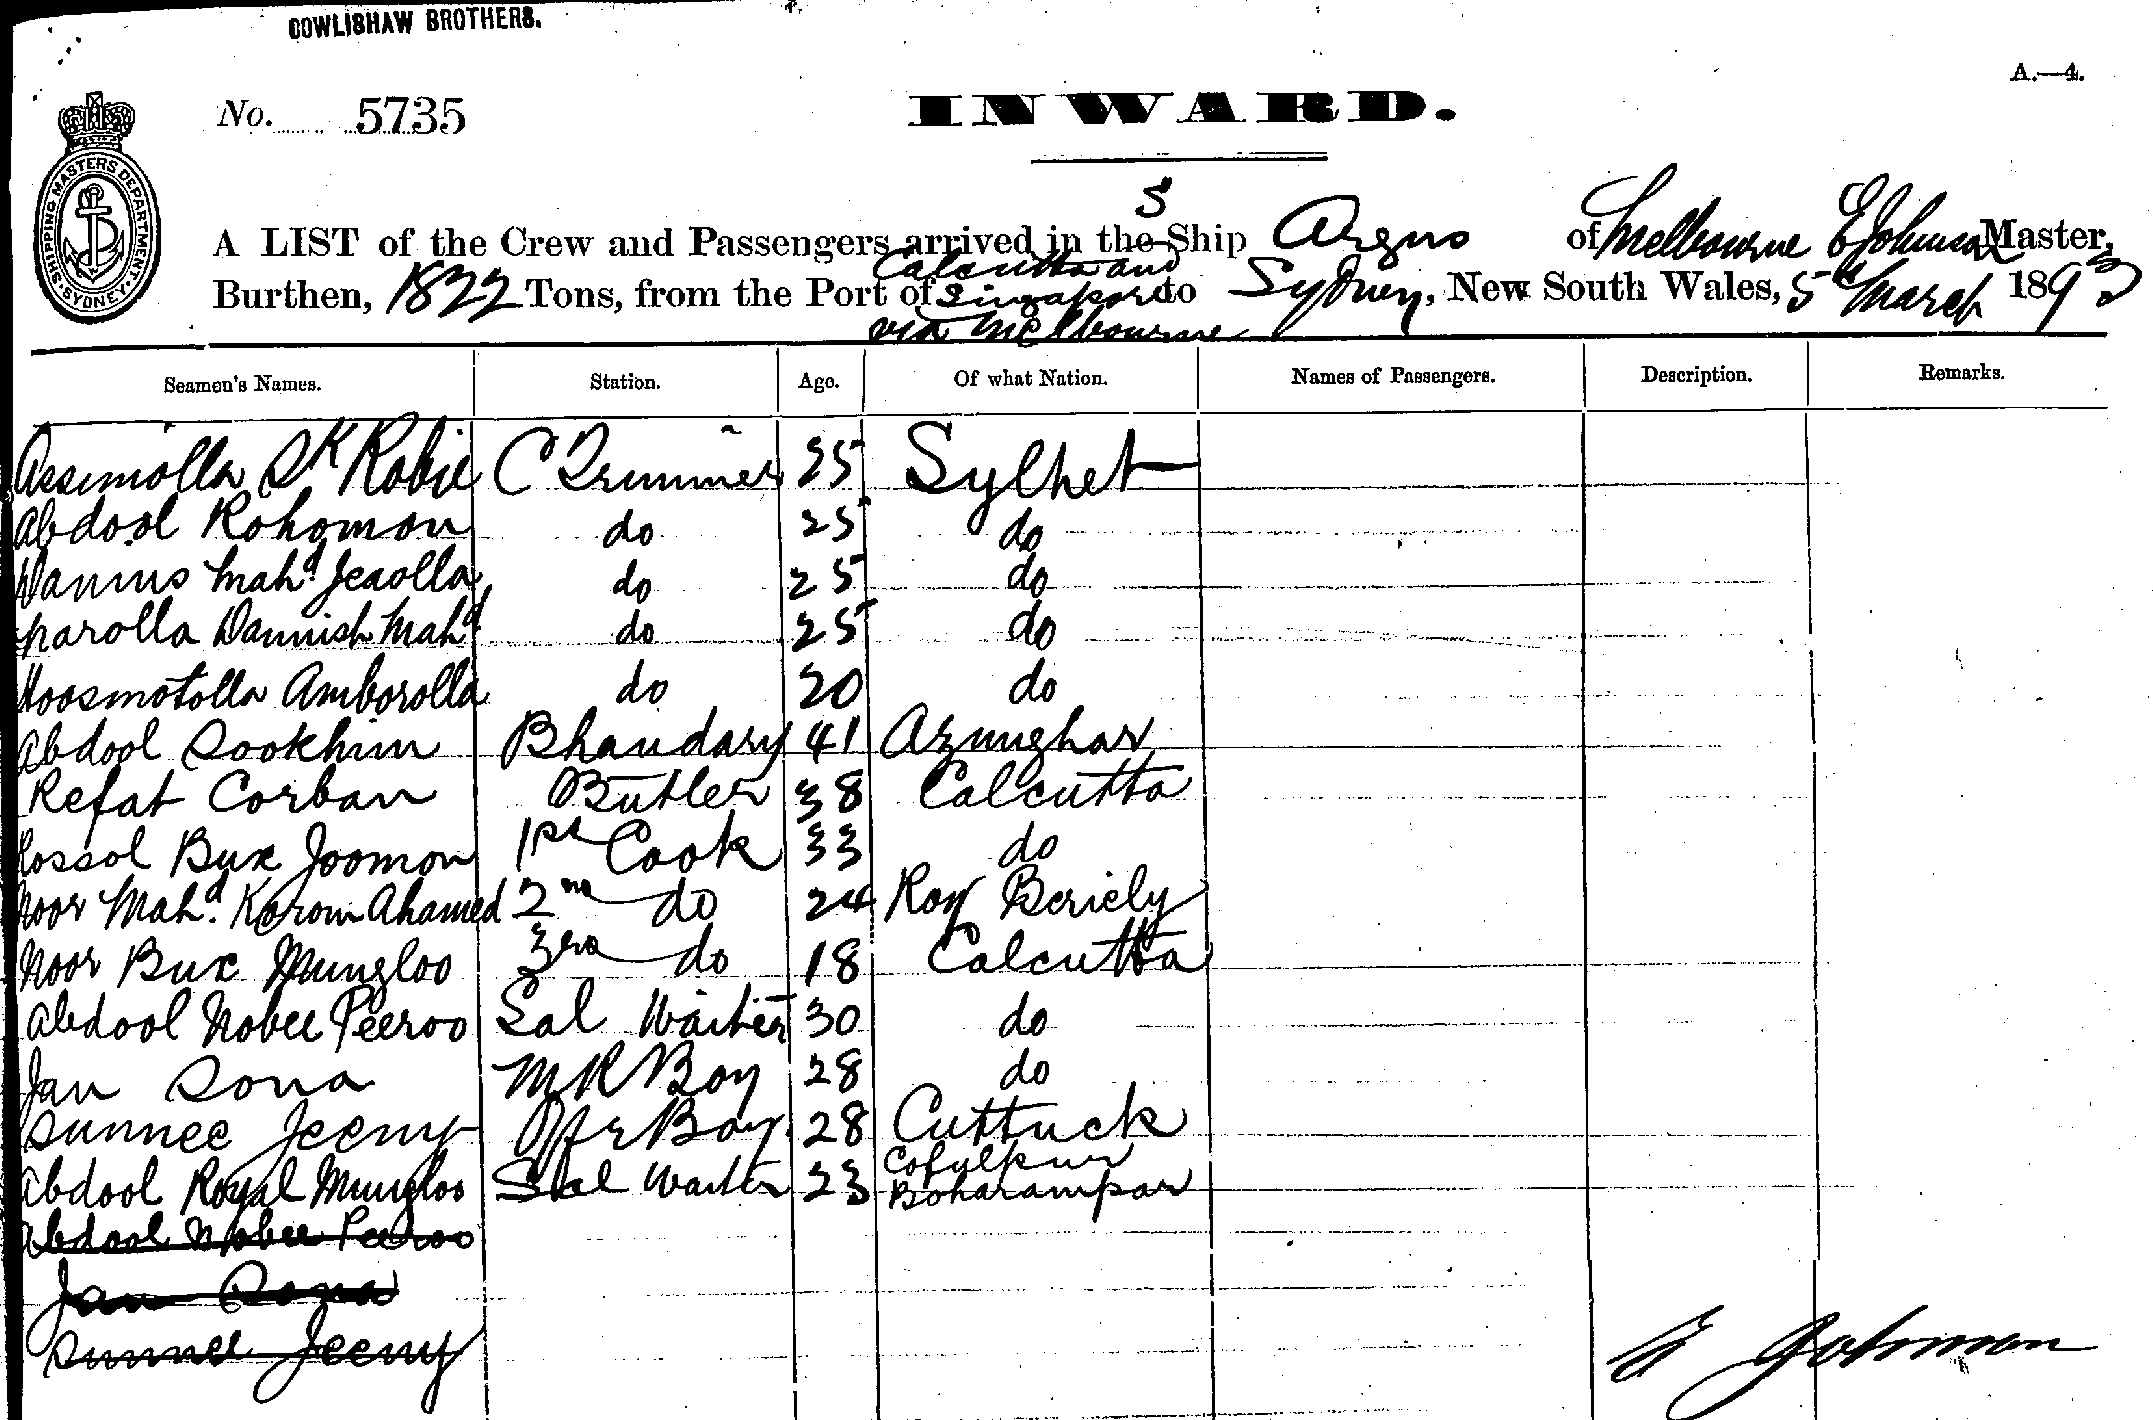 COWLISHAW BROTHERS.
A.—4.
No. 5735
INWARD.
SHIPPING MASTERS DEPARTMENT SYDNEY
S
A LIST of the Crew and Passengers arrived in the Ship Argus of Melbourne E Johnson Master,
Calcutta and
Burthen, 1822 Tons, from the Port of Singapore to Sydney, New South Wales, 5th March 1893
via Melbourne
Seamen's Names. Station. Age. Of what Nation. Names of Passengers. Description. Remarks.
Assimolla Sk Robie C Trimmer 25 Sylhet
Abdool Rohomon do 25 do
Wanus Mahd. Jeaolla do 25 do
parolla Dannish Mahd do 25 do
Hoosmotolla Amborolla do 20 do
Abdool Sookhim Bhandary 41 Azimghar
Refat Corban Butler 38 Calcutta
Rossol Bux Joomon 1st Cook 33 do
Noor Mahd. Korom Ahamed 2nd do 24 Roy Beriely
Noor Bux Mungloo 3rd do 18 Calcutta
Abdool Nobee Peeroo Sal Waiter 30 do
Jan Sona M R Boy 28 do
Sunnee Jeemy Offr Boy. 28 Cuttuck
Abdool Royal Mungloo Sal Waiter 23 Boharampar
Abdool Nobee Peeroo
Jan Sona
Sunnee Jeemy
E Johnson